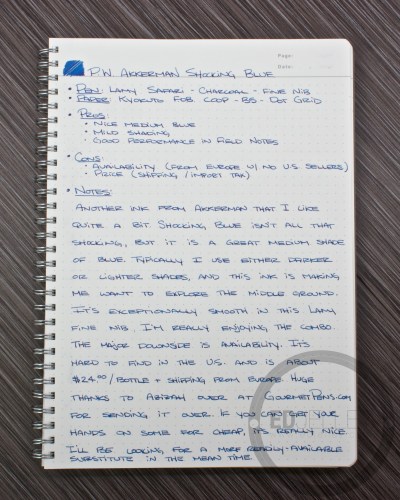 Page:
Date:
P.W. Akkerman Shocking Blue
• Pen: Lamy Safari - Charcoal - Fine Nib
• Paper: Kyokuto FOB COOP - B5 - Dot Grid
• Pros:
• Nice medium blue
• Mild shading
• Good performance in Field Notes
• Cons:
• Availability (from Europe w/ no U.S. sellers)
• Price (shipping / import tax)
• Notes:
Another ink from Akkerman that I like
quite a bit. Shocking Blue isn't all that
shocking, but it is a great medium shade
of blue. Typically I use either darker
or lighter shades, and this ink is making
me want to explore the middle ground.
It's exceptionally smooth in this Lamy
fine nib. I'm really enjoying the combo.
The major downside is availability. It's
hard to find in the U.S. and is about
$24.00/bottle + shipping from Europe. Huge
thanks to Azizah over at GourmetPens.com
for sending it over. If you can get your
hands on some for cheap, it's really nice.
I'll be looking for a more readily-available
substitute in the mean time.